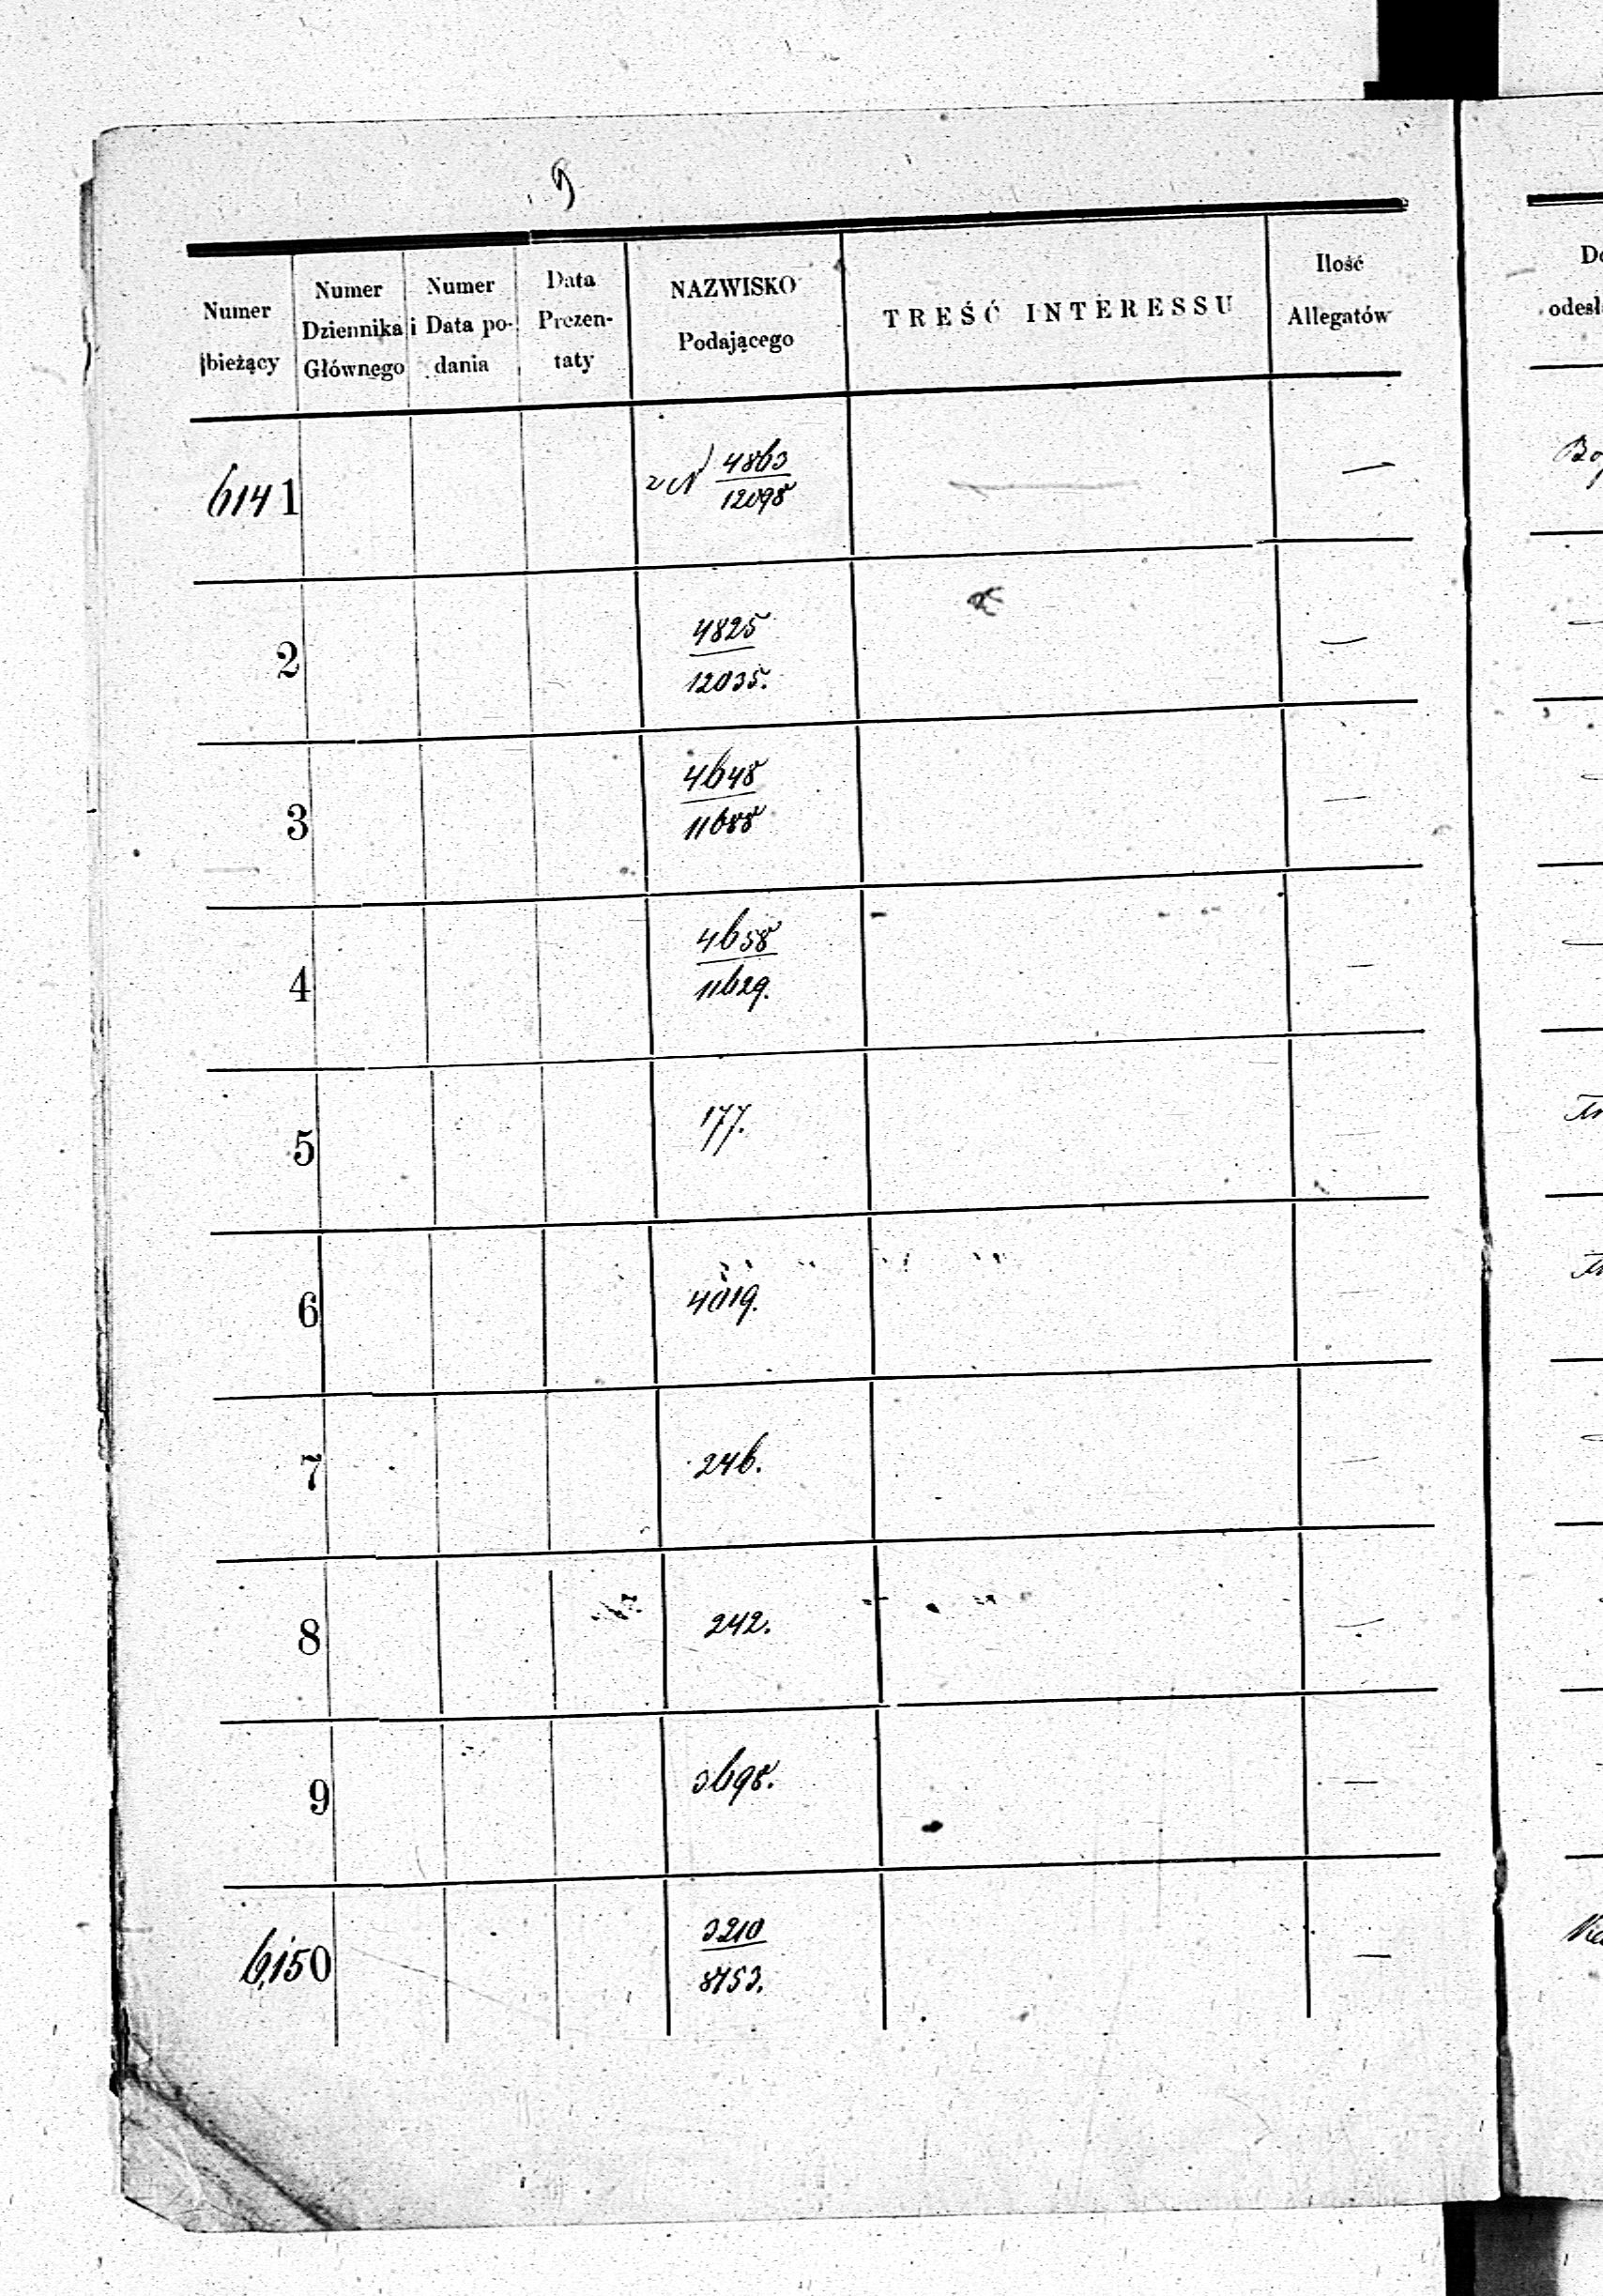 Numer bieżący
Numer Dziennika Głównego
Numer i Data podania
Data Prezentaty
NAZWISKO Podającego
TREŚĆ INTERESSU
Ilość Allegatów
6141
4863
12098
—
2
4825
12035.
—
3
4648
11688
—
4
4658
11629.
—
5
177.
—
6
4019.
—
7
246.
—
8
242.
—
9
3698.
—
6150
3210
8753.
—